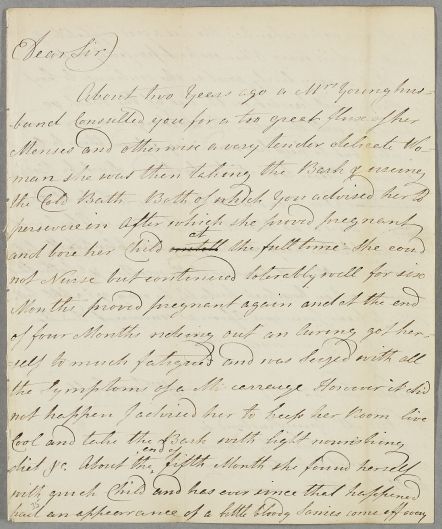 Dear Sir
About two Years ago a Mrs Younghus-
band Consulted you for a too great fluxe of her
Menses and otherwise a very tender delicate Wo-
man she was then taking the Bark & useing
the Cold Bath - Both of which you advised her to
persevere in After which she provd pregnant
and bore her Child at the full time She coud
not Nurse but continued tolerably well for six
Months, provd pregnant again and at the end
of four Months rideing out an Airing got her-
self to much fatigued and was seized with all
the Symptoms of a Miscarriage However it did
not happen I advised her to keep her Room live
Cool and take the Bark with light nourishing
diet &c. About the end of fifth Month she found herself
with quick Child and has ever since that happened
had an appearance of a little bloody Sanies come off every